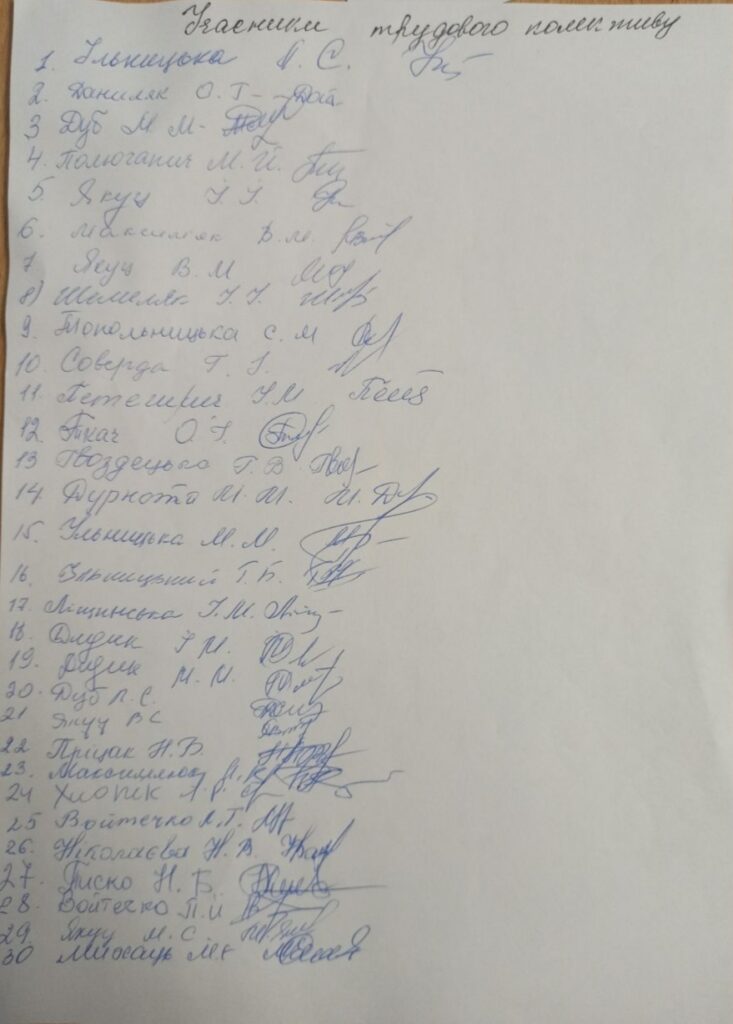 Учасники трудового колективу
1. Ільницька Л. С.
2. Даниляк О. Г.
3 Дуб М М.
4. Полюганич М. Й.
5. Якуц І. І.
6. Максимяк В. М.
7 Якуц В. М
8) Шемеляк І. І.
9. Топольницька С. М
10. Соверда Г. І.
11. І. М.
12. Ткач О. І.
13 Гвоздецька Г. В.
14 Дурнота М. М.
15. Ільницька М. М.
16. Ільницький Т. Б.
17. Ліщинська І. М.
18. Дидик І М.
19. Дидик М. М.
20. Дуб Л. С.
21 Якуц В С
22 Прицак Н. В.
23. Максимляк
24 Хлопик
25 Войтечко
26. Ніколаєва Н. В.
27. Писко Н. Б.
28. Войтечко П. Й
29. Якуц М. С.
30 Михаць